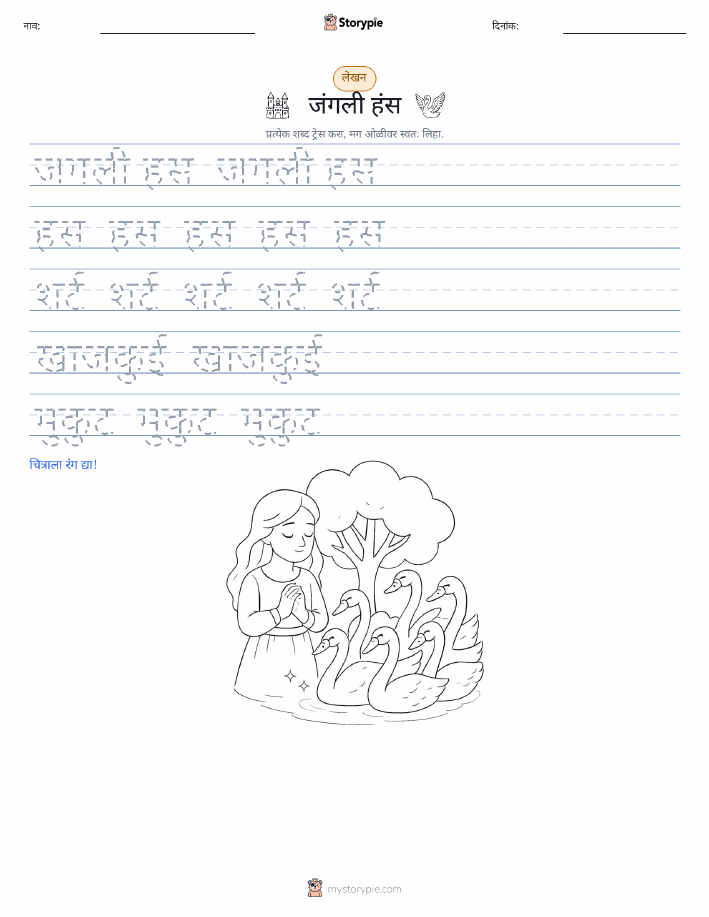 नाव:
Storypie
दिनांक:
लेखन
जंगली हंस
प्रत्येक शब्द ट्रेस करा, मग ओळीवर स्वतः लिहा.
जगली हस जगली हस
हस हस हस हस हस
शर्ट शर्ट शर्ट शर्ट शर्ट
खाजकुई खाजकुई
मुकुट मुकुट मुकुट
चित्राला रंग द्या!
mystorypie.com